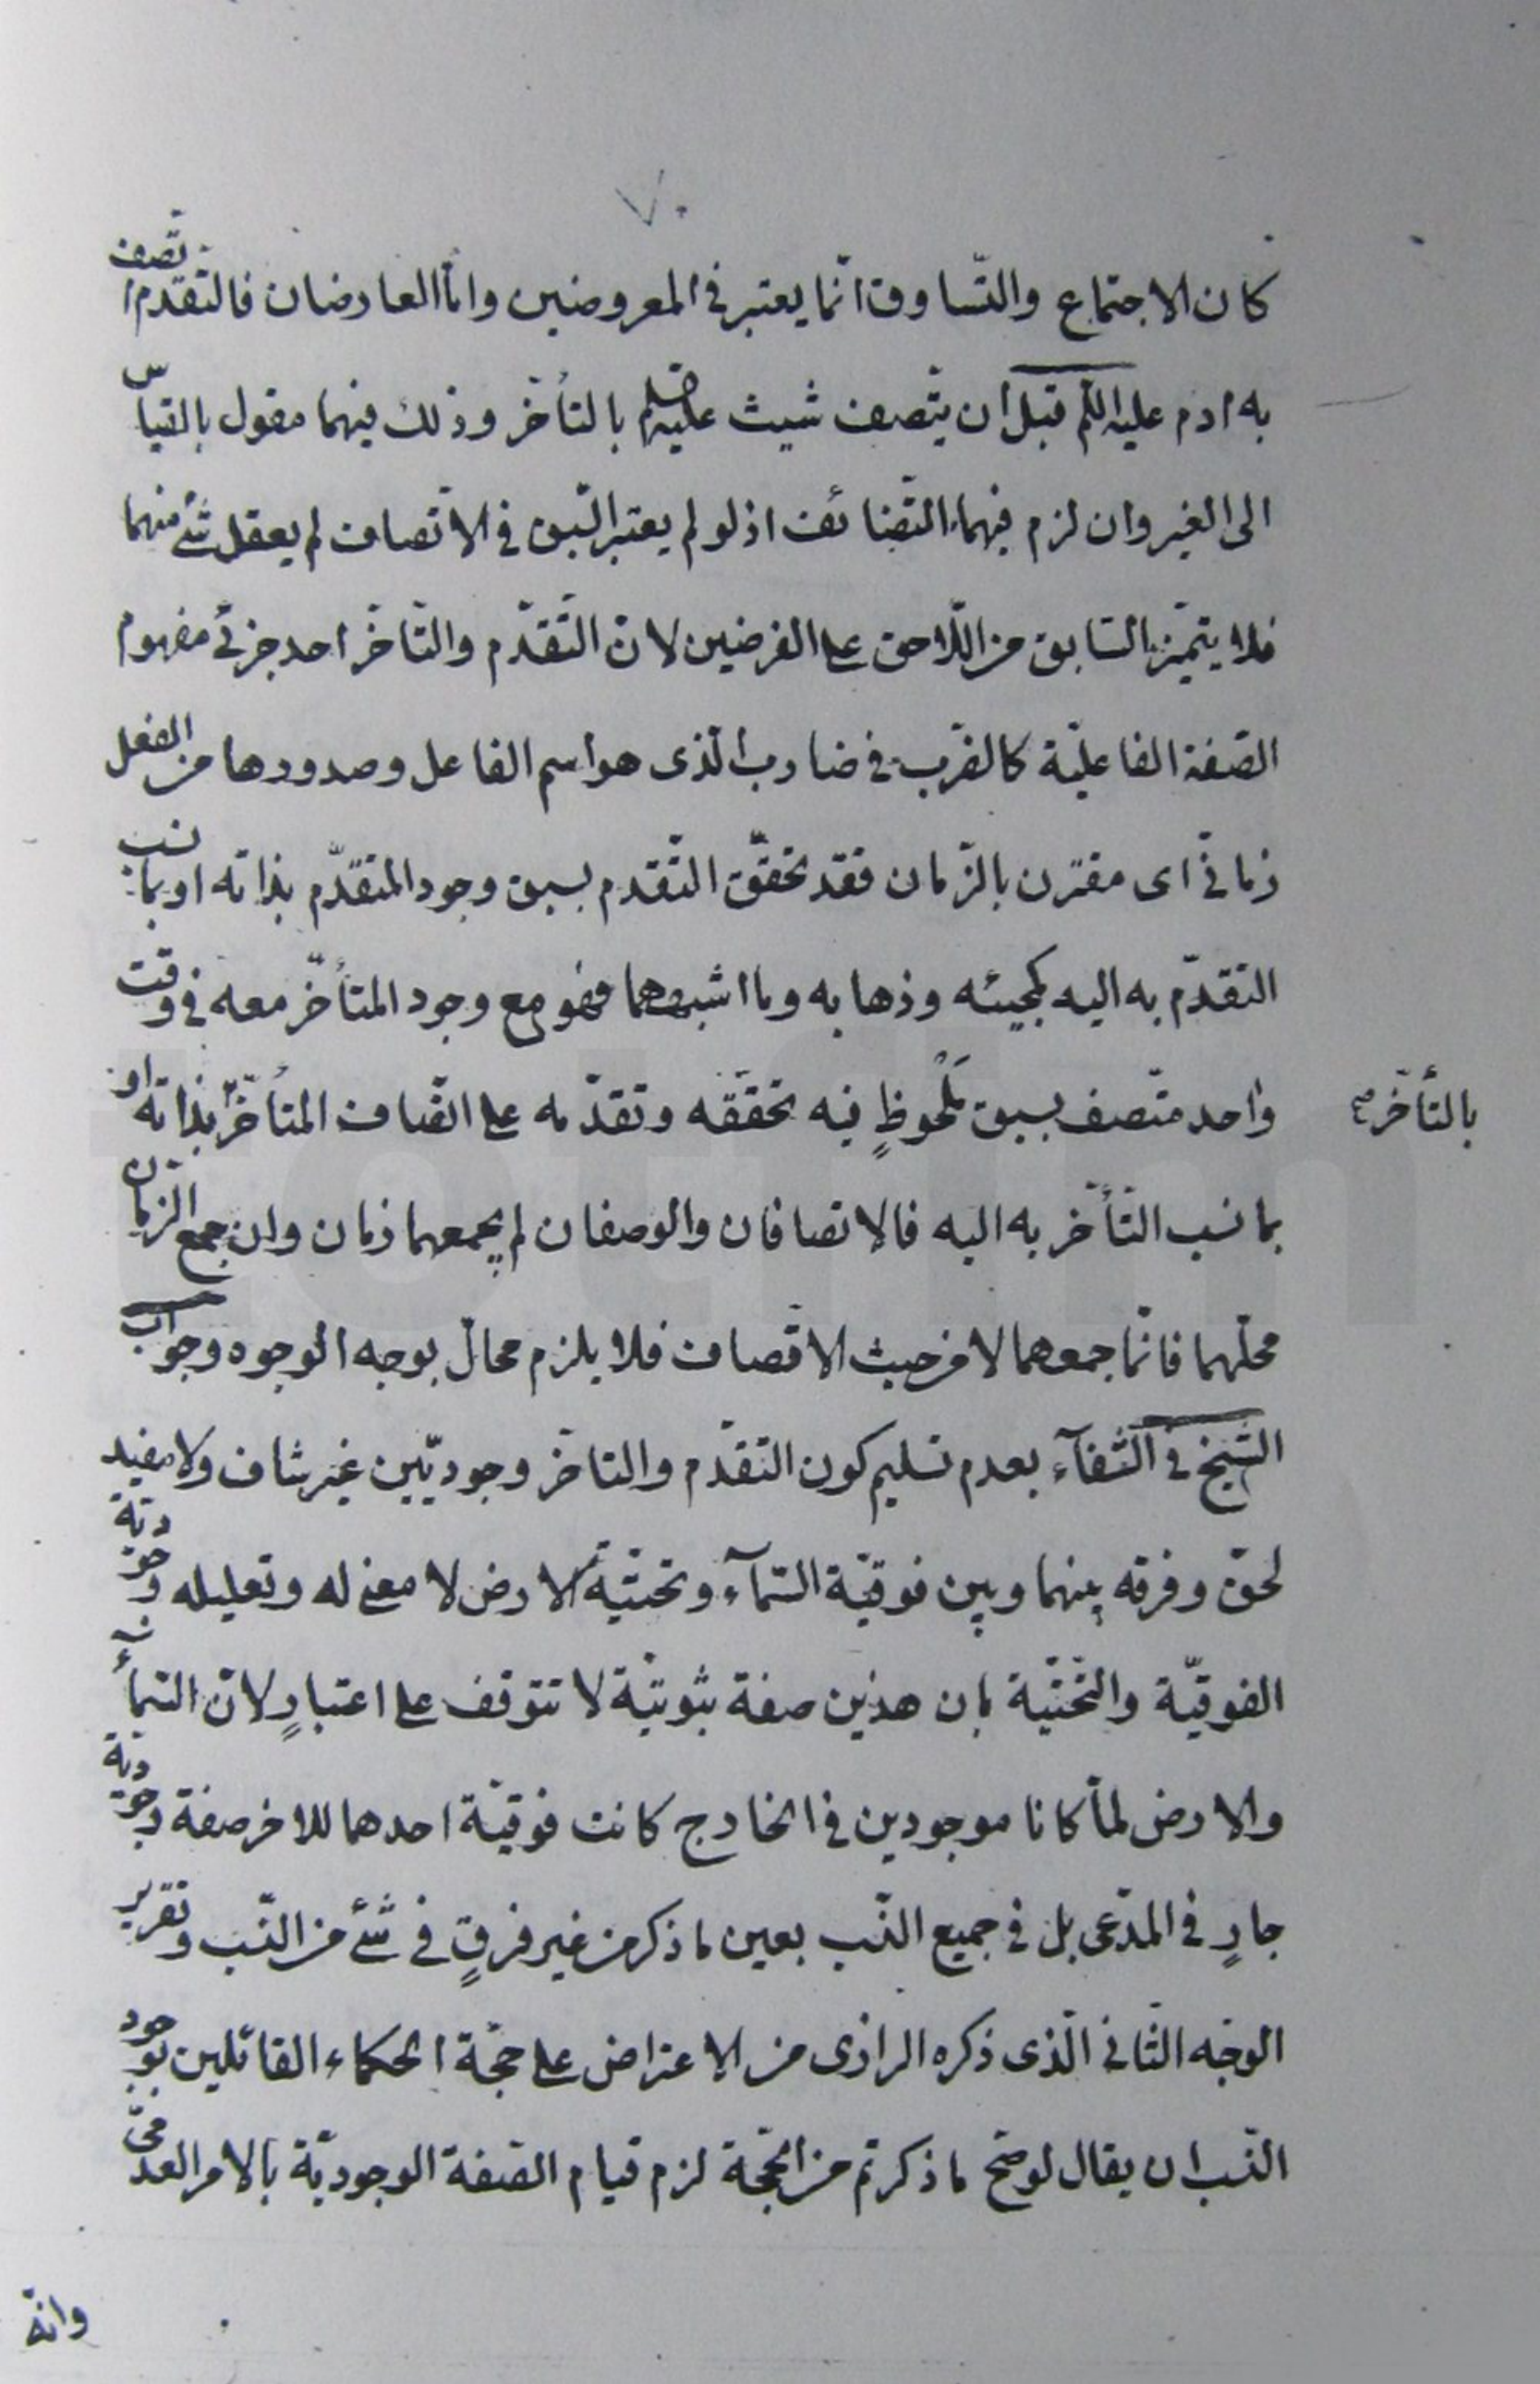 ٧٠
كان الاجتماع والتّساوق انّما يعتبر فى المعروضين وامّا العارضان فالتّقدّم اتّصف
به ادم عليه السّلم قبل ان يتّصف شيث عليه السلم بالتأخّر وذلك فيهما مقول بالقياس
الى الغير وان لزم فيهما التّضائف اذ لو لم يعتبر السّبق فى الاتّصاف لم يعقل شئ منهما
فلا يتميّز السّابق من اللّاحق على الفرضين لانّ التّقدّم والتّاخّر احد جزئى مفهوم
الصّفة الفاعليّة كالضّرب فى ضارب الّذى هو اسم الفاعل وصدورها من الفعل
زمانىّ اى مقترن بالزّمان فقد تحقّق التّقدم بسبق وجود المتقدّم بذاته او بما نسب
التقدّم به اليه كمجيئه وذهابه وما اشبههما فهو مع وجود المتأخّر معه فى وقت
واحد متّصف بسبق مَلْحوظٍ فيه تحقّقه وتقدّمه على اتّصاف المتأخّر بذاته او
بالتأخّر صح
بما نسب التّأخّر به اليه فالاتصافان والوصفان لم يجمعهما زمان وان جمع الزمان
محلّهما فانّما جمعهما لا من حيث الاتّصاف فلا يلزم محال بوجه الوجوه وجواب
الشّيخ فى الشّفآء بعدم تسليم كون التقدّم والتاخّر وجوديّين غير شاف ولا مفيد
لحقّ وفرقه بينهما وبين فوقيّة السّمآء وتحتيّة الارض لا معنى له وتعليله وجوديّة
الفوقيّة والتّحتيّة بان هذين صفة ثبوتيّة لا تتوقف على اعتبارٍ لانّ السّمآء
والارض لمّا كانا موجودين فى الخارج كانت فوقيّة احدهما للاخر صفة وجوديّة
جارٍ فى المدّعى بل فى جميع النّسب بعين ما ذكر من غير فرقٍ فى شئ من النّسب وتقرير
الوجه الثّانى الّذى ذكره الرازى من الاعتراض على حجّة الحكماء القائلين بوجود
النّسب ان يقال لو صحّ ما ذكرتم من الحجّة لزم قيام الصّفة الوجوديّة بالامر العدمىّ
وانّه